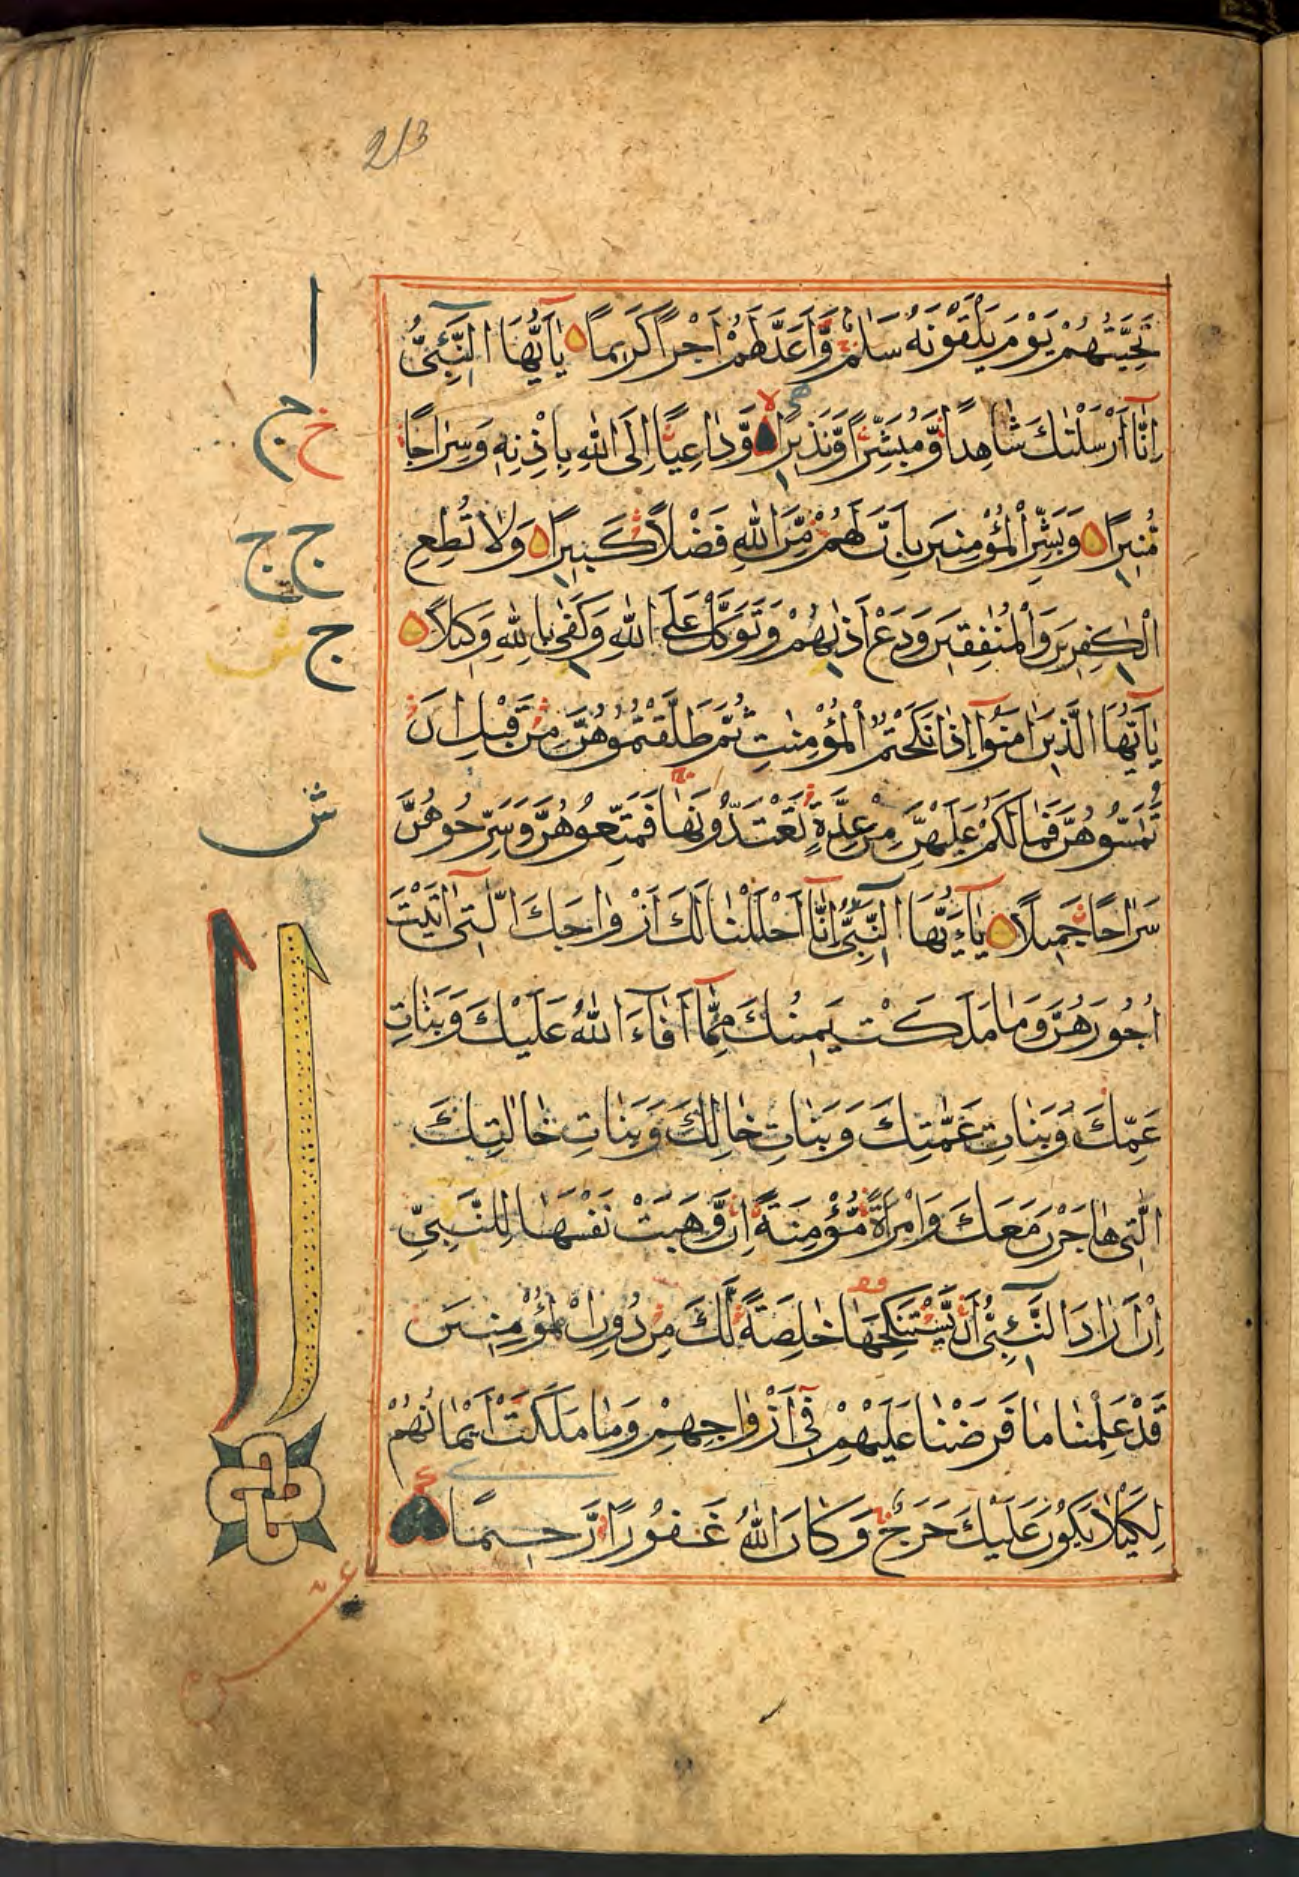 213
تَحِيَّتُهُمْ يَوْمَ يَلْقَوْنَهُ سَلٰمٌ وَّاَعَدَّ لَهُمْ اَجْرًا كَرِيمًا يٰاَيُّهَا النَّبِيُّ
اِنَّا اَرْسَلْنٰكَ شَاهِدًا وَّمُبَشِّرًا وَّنَذِيرًا وَّدَاعِيًا اِلَى اللّٰهِ بِاِذْنِهٖ وَسِرَاجًا
مُّنِيرًا وَبَشِّرِ الْمُؤْمِنِينَ بِاَنَّ لَهُمْ مِّنَ اللّٰهِ فَضْلًا كَبِيرًا وَلَا تُطِعِ
الْكٰفِرِينَ وَالْمُنٰفِقِينَ وَدَعْ اَذٰىهُمْ وَتَوَكَّلْ عَلَى اللّٰهِ وَكَفٰى بِاللّٰهِ وَكِيلًا
يٰاَيُّهَا الَّذِينَ اٰمَنُوا اِذَا نَكَحْتُمُ الْمُؤْمِنٰتِ ثُمَّ طَلَّقْتُمُوهُنَّ مِنْ قَبْلِ اَنْ
تَمَسُّوهُنَّ فَمَا لَكُمْ عَلَيْهِنَّ مِنْ عِدَّةٍ تَعْتَدُّونَهَا فَمَتِّعُوهُنَّ وَسَرِّحُوهُنَّ
سَرَاحًا جَمِيلًا يٰاَيُّهَا النَّبِيُّ اِنَّا اَحْلَلْنَا لَكَ اَزْوَاجَكَ الّٰتِي اٰتَيْتَ
اُجُورَهُنَّ وَمَا مَلَكَتْ يَمِينُكَ مِمَّا اَفَاءَ اللّٰهُ عَلَيْكَ وَبَنَاتِ
عَمِّكَ وَبَنَاتِ عَمّٰتِكَ وَبَنَاتِ خَالِكَ وَبَنَاتِ خَالٰتِكَ
الّٰتِي هَاجَرْنَ مَعَكَ وَامْرَاَةً مُّؤْمِنَةً اِنْ وَّهَبَتْ نَفْسَهَا لِلنَّبِيِّ
اِنْ اَرَادَ النَّبِيُّ اَنْ يَّسْتَنْكِحَهَا خَالِصَةً لَّكَ مِنْ دُونِ الْمُؤْمِنِينَ
قَدْ عَلِمْنَا مَا فَرَضْنَا عَلَيْهِمْ فِي اَزْوَاجِهِمْ وَمَا مَلَكَتْ اَيْمَانُهُمْ
لِكَيْلَا يَكُونَ عَلَيْكَ حَرَجٌ وَكَانَ اللّٰهُ غَفُورًا رَّحِيمًا